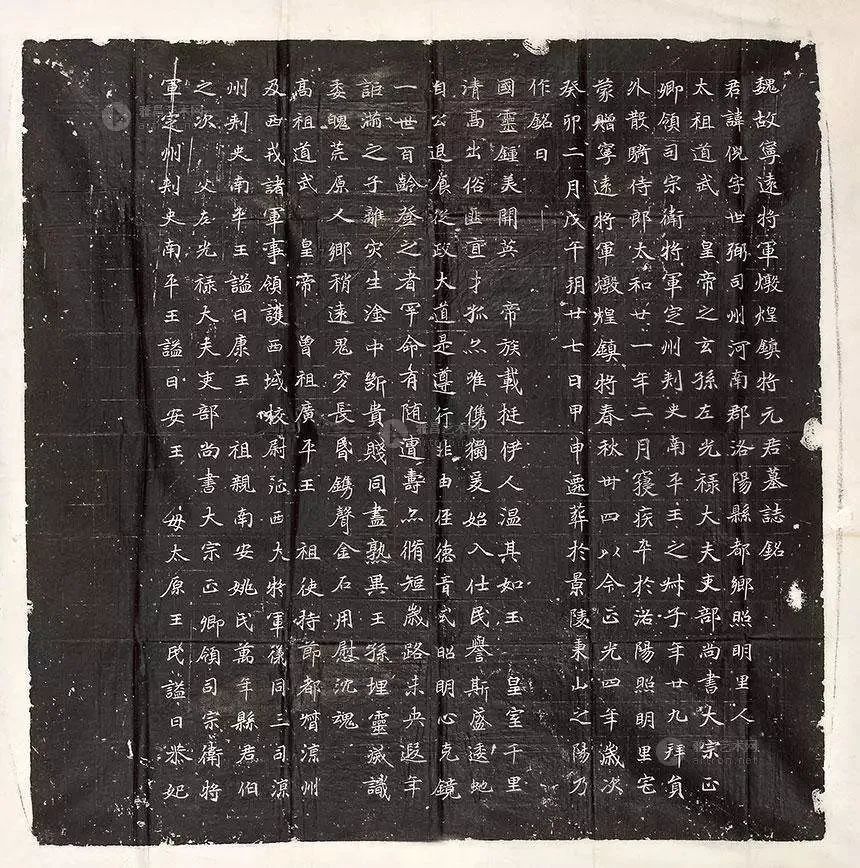 魏故寧遠將軍燉煌鎮將元君墓誌銘
君諱倪字世弼司州河南郡洛陽縣都鄉照明里人
太祖道武　皇帝之玄孫左光祿大夫吏部尚書大宗正
卿領司宗衛將軍定州刺史南平王之叔子年廿九拜員
外散騎侍郎太和廿一年二月寑疾卒於洛陽照明里宅
蒙贈寧遠將軍燉煌鎮將春秋卅四以今正光四年歲次
癸卯二月戊午朔廿七日甲申遷葬於景陵東山之陽乃
作銘曰
國靈鍾美開英　帝族載挺伊人溫其如玉　皇室千里
清高出俗匪直才孤亦唯儁獨爰始入仕民譽斯盛逶虵
自公退食從政大道是遵行非由徑德音式昭明心克鏡
一世百齡登之者罕命有隨遭壽亦脩短歲路未央遐年
詎滿之子離灾生淦中斷貴賤同盡孰異王孫埋靈藏識
委魄荒原人鄉稍遠鬼穸長昏鐫聲金石用慰沈魂
高祖道武　皇帝　曾祖廣平王　祖使持節都督涼州
及西戎諸軍事領護西域校尉征西大將軍儀同三司涼
州刺史南平王謚曰康王　祖親南安姚氏萬年縣君伯
之次　父左光祿大夫吏部尚書大宗正卿領司宗衛將
軍定州刺史南平王謚曰安王　母太原王氏謚曰恭妃